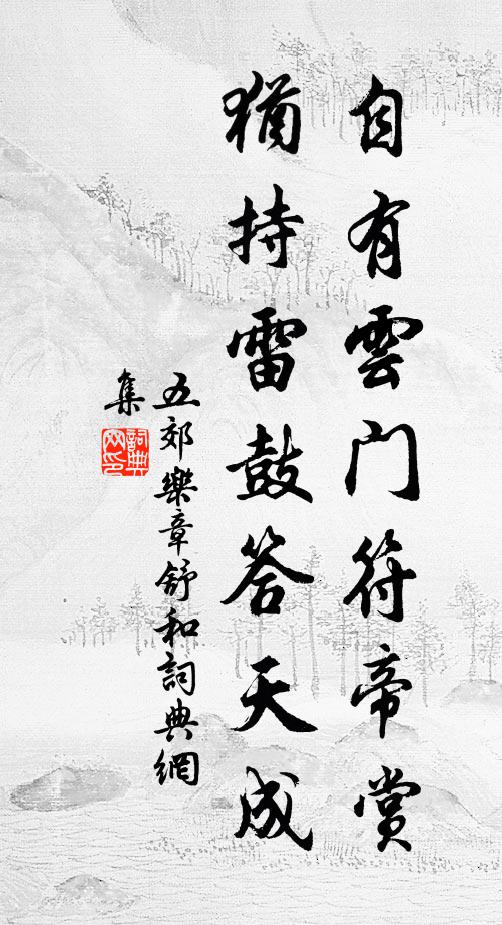 自有雲門符帝賞
猶持雷鼓答天成
五郊樂章舒和詞典網
集
詞典
網印